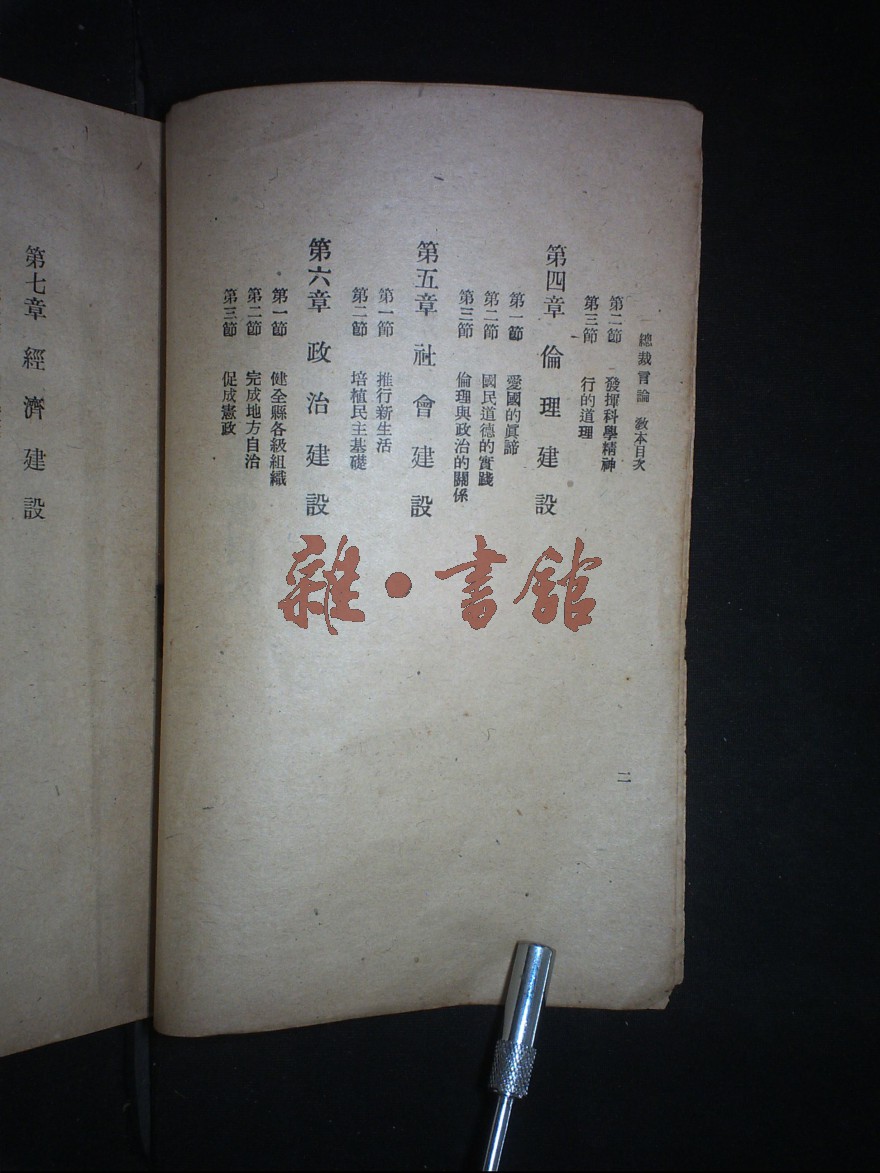 總裁言論 教本目次
第二節 發揮科學精神
第三節 行的道理
第四章 倫理建設
第一節 愛國的眞諦
第二節 國民道德的實踐
第三節 倫理與政治的關係
第五章 社會建設
第一節 推行新生活
第二節 培植民主基礎
第六章 政治建設
第一節 健全縣各級組織
第二節 完成地方自治
第三節 促成憲政
二
第七章 經濟建設
雜·書館